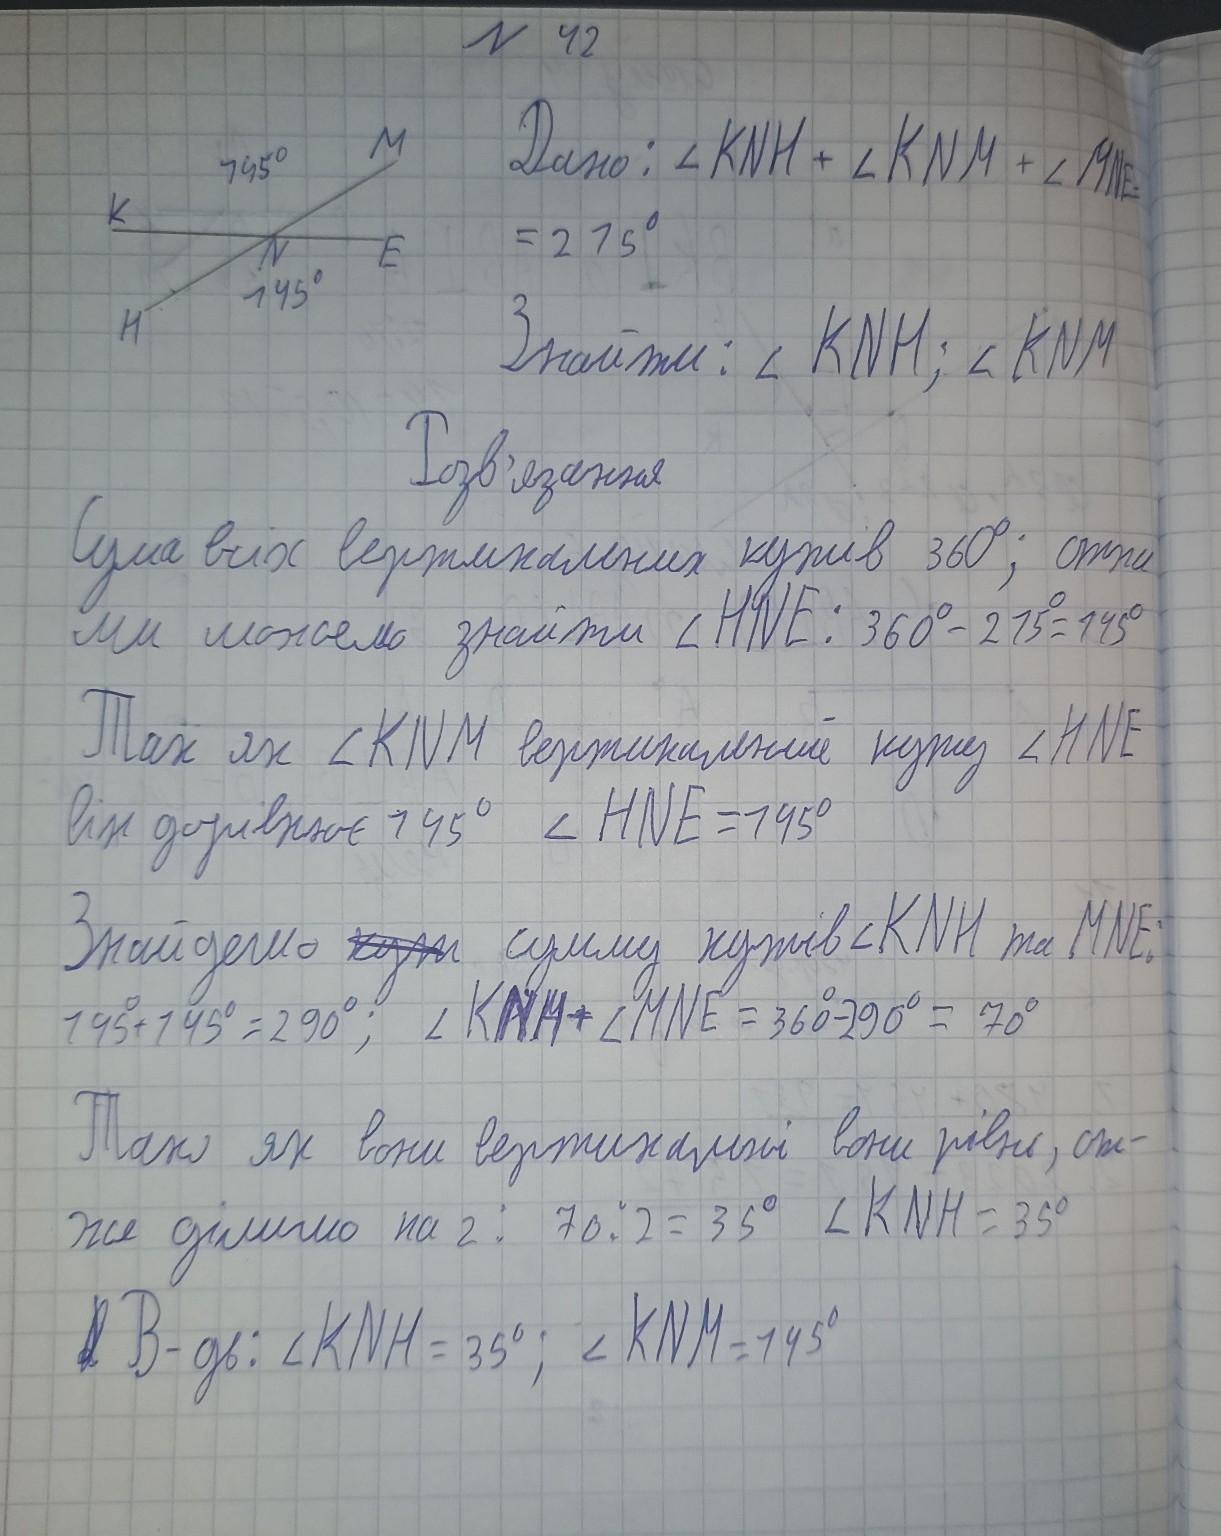 N 42
145°
M
K
N
E
145°
H
Дано: ∠KNH + ∠KNM + ∠MNE=
= 215°
Знайти: ∠ KNH; ∠ KNM
Розв'язання
Сума всіх вертикальних кутів 360°; отже
ми можемо знайти ∠HNE: 360° - 215° = 145°
Так як ∠KNM вертикальний куту ∠HNE
він дорівнює 145° ∠ HNE = 145°
Знайдемо сумму кутів ∠KNH та MNE:
145° + 145° = 290°; ∠KNH + ∠MNE = 360° - 290° = 70°
Так як вони вертикальні вони рівні, от-
же ділимо на 2: 70:2 = 35° ∠KNH = 35°
В-дь: ∠KNH = 35°; ∠KNM = 145°